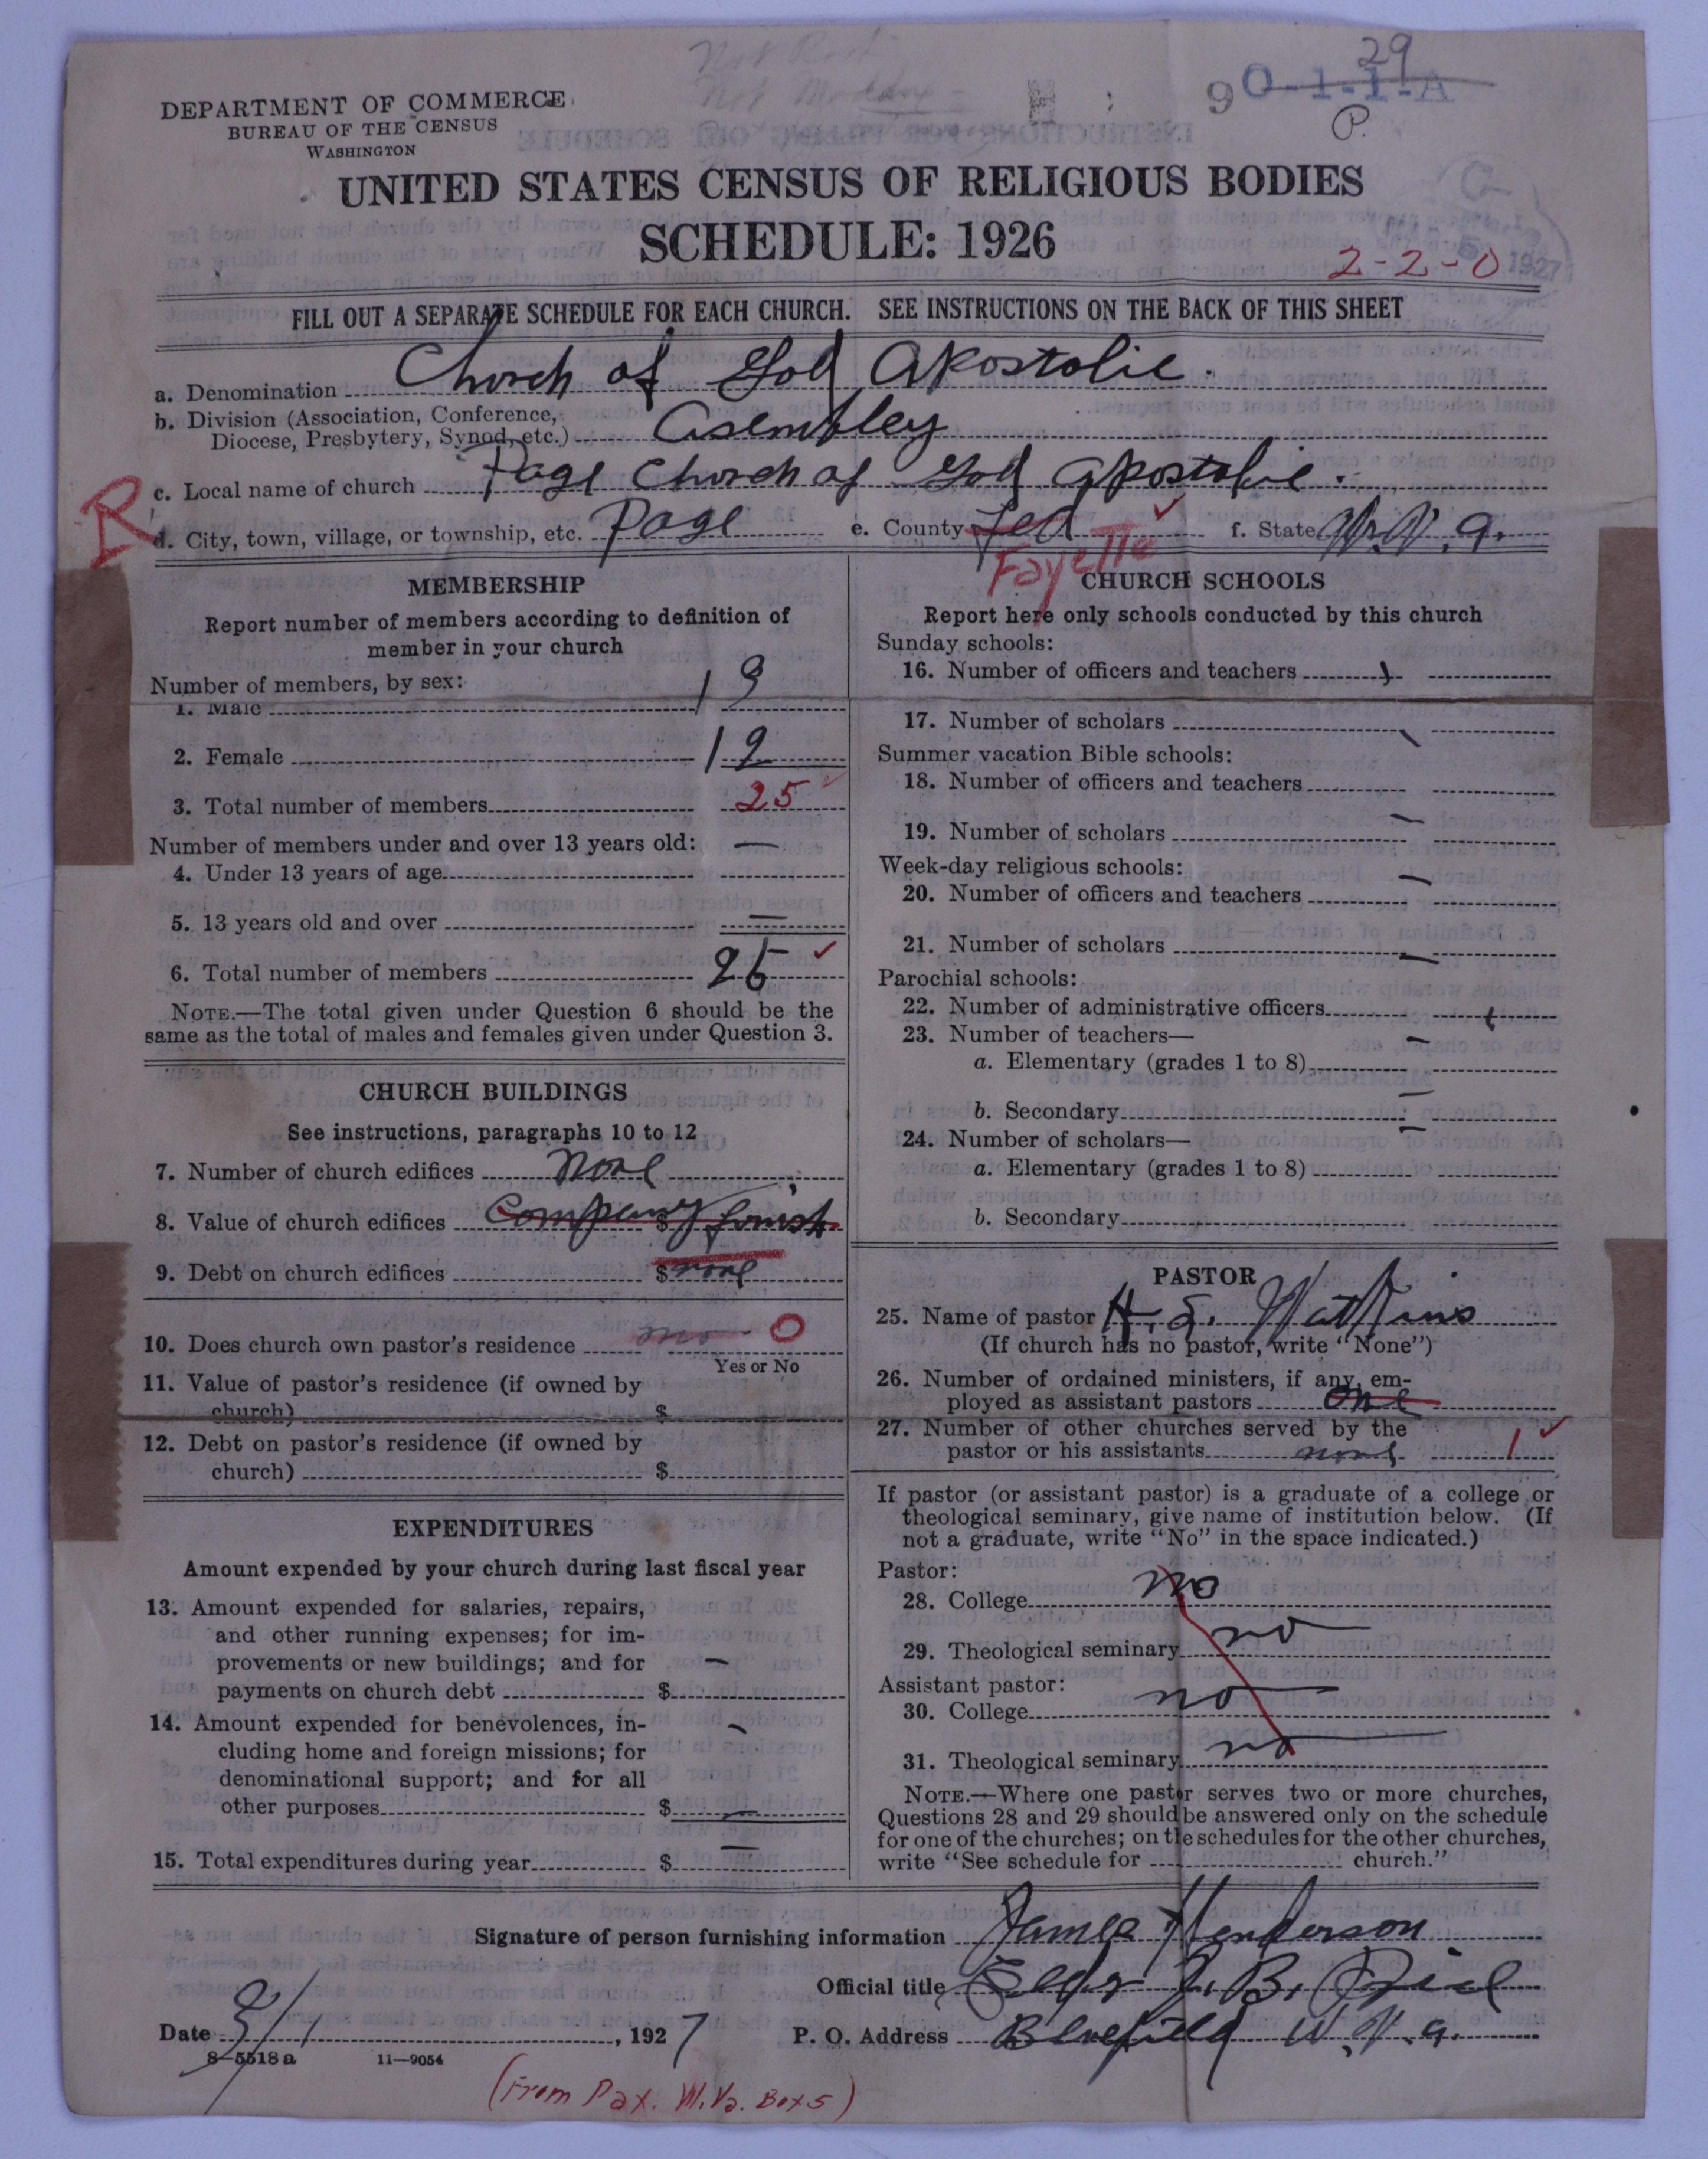 29
90-1-1-A
P.
DEPARTMENT OF COMMERCE
BUREAU OF THE CENSUS
WASHINGTON
UNITED STATES CENSUS OF RELIGIOUS BODIES
SCHEDULE: 1926
2-2-0 1927
FILL OUT A SEPARATE SCHEDULE FOR EACH CHURCH. SEE INSTRUCTIONS ON THE BACK OF THIS SHEET
a. Denomination Church of God Apostolic.
b. Division (Association, Conference,
Diocese, Presbytery, Synod, etc.) Asembley
c. Local name of church Page Church of God Apostolic.
R
d. City, town, village, or township, etc. Page e. County f. State W.V.a.
Fayette
MEMBERSHIP
Report number of members according to definition of
member in your church
Number of members, by sex:
1. Male 13
2. Female 12
3. Total number of members 25
Number of members under and over 13 years old: —
4. Under 13 years of age
5. 13 years old and over —
6. Total number of members 25
NOTE.—The total given under Question 6 should be the
same as the total of males and females given under Question 3.
CHURCH BUILDINGS
See instructions, paragraphs 10 to 12
7. Number of church edifices none
8. Value of church edifices Company $
9. Debt on church edifices $ none
10. Does church own pastor's residence no 0
Yes or No
11. Value of pastor's residence (if owned by
church) $
12. Debt on pastor's residence (if owned by
church) $
EXPENDITURES
Amount expended by your church during last fiscal year
13. Amount expended for salaries, repairs,
and other running expenses; for im-
provements or new buildings; and for —
payments on church debt $
14. Amount expended for benevolences, in- —
cluding home and foreign missions; for
denominational support; and for all
other purposes $ —
15. Total expenditures during year $ —
CHURCH SCHOOLS
Report here only schools conducted by this church
Sunday schools:
16. Number of officers and teachers
17. Number of scholars
Summer vacation Bible schools:
18. Number of officers and teachers
19. Number of scholars —
Week-day religious schools:
20. Number of officers and teachers —
21. Number of scholars —
Parochial schools:
22. Number of administrative officers
23. Number of teachers— —
a. Elementary (grades 1 to 8)
b. Secondary —
24. Number of scholars— —
a. Elementary (grades 1 to 8)
b. Secondary
PASTOR
25. Name of pastor H. S. Watkins
(If church has no pastor, write "None")
26. Number of ordained ministers, if any, em-
ployed as assistant pastors one
27. Number of other churches served by the
pastor or his assistants none 1
If pastor (or assistant pastor) is a graduate of a college or
theological seminary, give name of institution below. (If
not a graduate, write "No" in the space indicated.)
Pastor:
28. College no
29. Theological seminary no
Assistant pastor:
30. College no
31. Theological seminary no
NOTE.—Where one pastor serves two or more churches,
Questions 28 and 29 should be answered only on the schedule
for one of the churches; on the schedules for the other churches,
write "See schedule for church."
Signature of person furnishing information James Henderson
Official title J. B.
Date 3/1, 1927 P. O. Address Bluefield W.V.a.
8-5518a 11—9054
(From Pax. W.Va. Box 5)